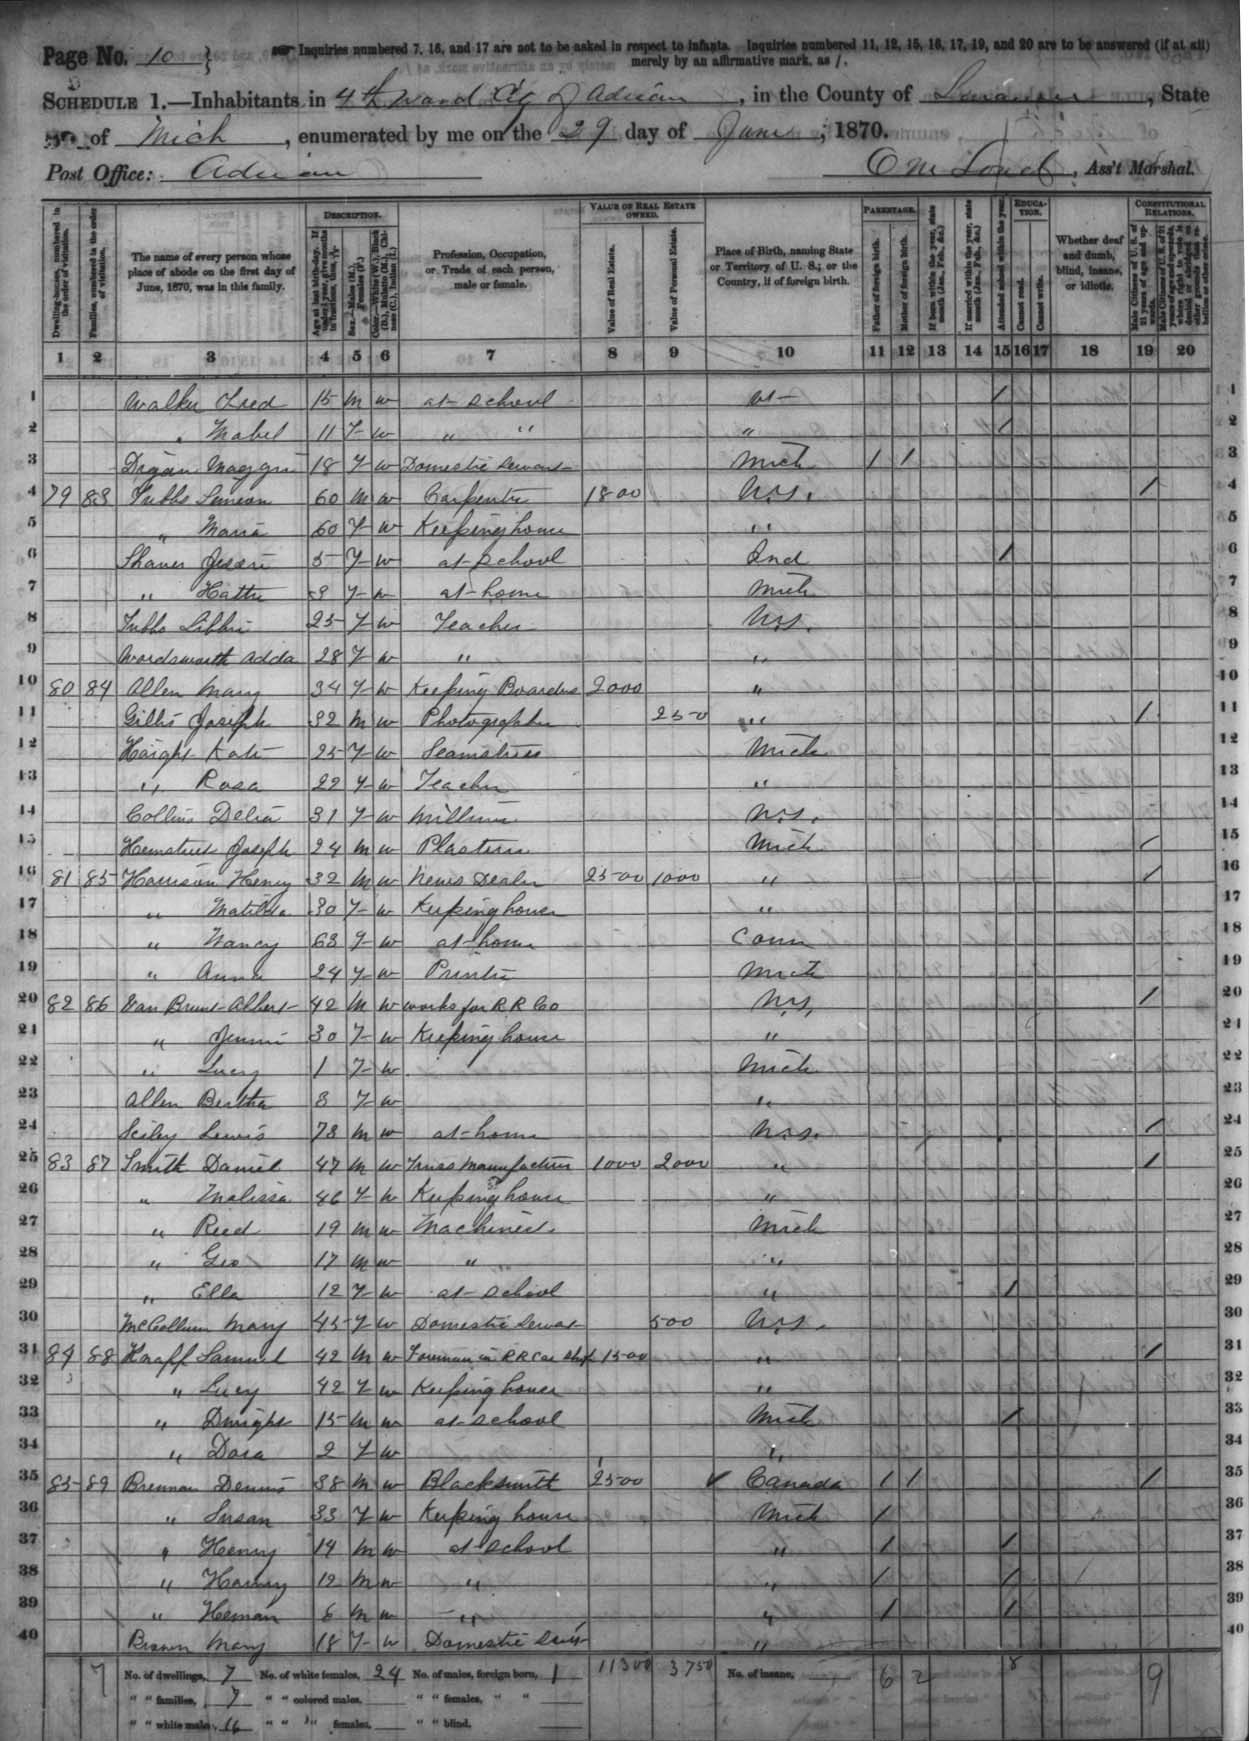 Page No. 10 } Inquiries numbered 7, 16, and 17 are not to be asked in respect to infants. Inquiries numbered 11, 12, 15, 16, 17, 19, and 20 are to be answered (if at all)
merely by an affirmative mark, as /.
SCHEDULE 1.—Inhabitants in 4th Ward City of Adrian, in the County of Lenawee, State
of Mich, enumerated by me on the 29 day of June, 1870.
Post Office: Adrian Ass't Marshal.
DESCRIPTION. VALUE OF REAL ESTATE OWNED. PARENTAGE. EDUCATION. CONSTITUTIONAL RELATIONS.
Dwelling-houses, numbered in the order of visitation.
Families, numbered in the order of visitation.
The name of every person whose place of abode on the first day of June, 1870, was in this family.
Profession, Occupation, or Trade of each person, male or female.
Value of Real Estate.
Value of Personal Estate.
Place of Birth, naming State or Territory of U. S.; or the Country, if of foreign birth.
Father of foreign birth.
Mother of foreign birth.
If born within the year, state month (Jan., Feb., &c.)
If married within the year, state month (Jan., Feb., &c.)
Attended school within the year.
Cannot read.
Cannot write.
Whether deaf and dumb, blind, insane, or idiotic.
1 2 3 4 5 6 7 8 9 10 11 12 13 14 15 16 17 18 19 20
1 Walker Fred 15 M W at school / 1
2 " Mabel 11 F W " " " / 2
3 Maggie 18 F W Domestic Servant Mich / / 3
4 79 83 Tubbs Simeon 60 M W Carpenter 1800 N.Y. / 4
5 " Maria 60 F W Keeping house " 5
6 Shaver Jessie 5 F W at school Ind / 6
7 " Hattie F W at home Mich 7
8 Tubbs Libbie 25 F W Teacher N.Y. 8
9 Wordsworth Adda 28 F W " " 9
10 80 84 Allen Mary 34 F W Keeping Boarders 2000 " 10
11 Gillis Joseph 32 M W Photographer 250 " / 11
12 Haight Kate 25 F W Seamstress Mich 12
13 " Rosa 22 F W Teacher " 13
14 Collins Delia 31 F W Milliner N.Y. 14
15 Joseph 24 M W Plasterer Mich / 15
16 81 85 Harrison Henry 32 M W News Dealer 2500 1000 " / 16
17 " Matilda 30 F W Keeping house " 17
18 " Nancy 63 F W at home Conn 18
19 " Anna 24 F W Printer Mich 19
20 82 86 Van Brunt Albert 42 M W works for R R Co N.Y. / 20
21 " Jennie 30 F W Keeping house " 21
22 " Lucy 1 F W Mich 22
23 Allen Bertha F W " 23
24 Lewis 78 M W at home N.Y. / 24
25 83 87 Smith Daniel 47 M W Truss Manufacturer 1000 2000 " / 25
26 " Malissa 46 F W Keeping house " 26
27 " Reed 19 M W Machinist Mich 27
28 " Geo 17 M W " " 28
29 " Ella 12 F W at school " / 29
30 McCollum Mary 45 F W Domestic Servant 500 N.Y. 30
31 84 88 Knapp Samuel 42 M W Foreman in R R Car Shop 1500 " / 31
32 " Lucy 42 F W Keeping house " 32
33 " Dwight 15 M W at school Mich / 33
34 " Dora 2 F W " 34
35 85 89 Brennan Dennis 38 M W Blacksmith 2500 Canada / / / 35
36 " Susan 33 F W Keeping house Mich / 36
37 " Henry 14 M W at school " / / 37
38 " Harvey 12 M W " " / / 38
39 " Heman 6 M W " " / / 39
40 Brown Mary 18 F W Domestic Serv't " 40
7 No. of dwellings, 7 No. of white females, 24 No. of males, foreign born, 1 11300 3750 No. of insane, 6 2 8 9
" " families, 7 " " colored males, " " females, " "
" " white males, 16 " " " females, " " blind,